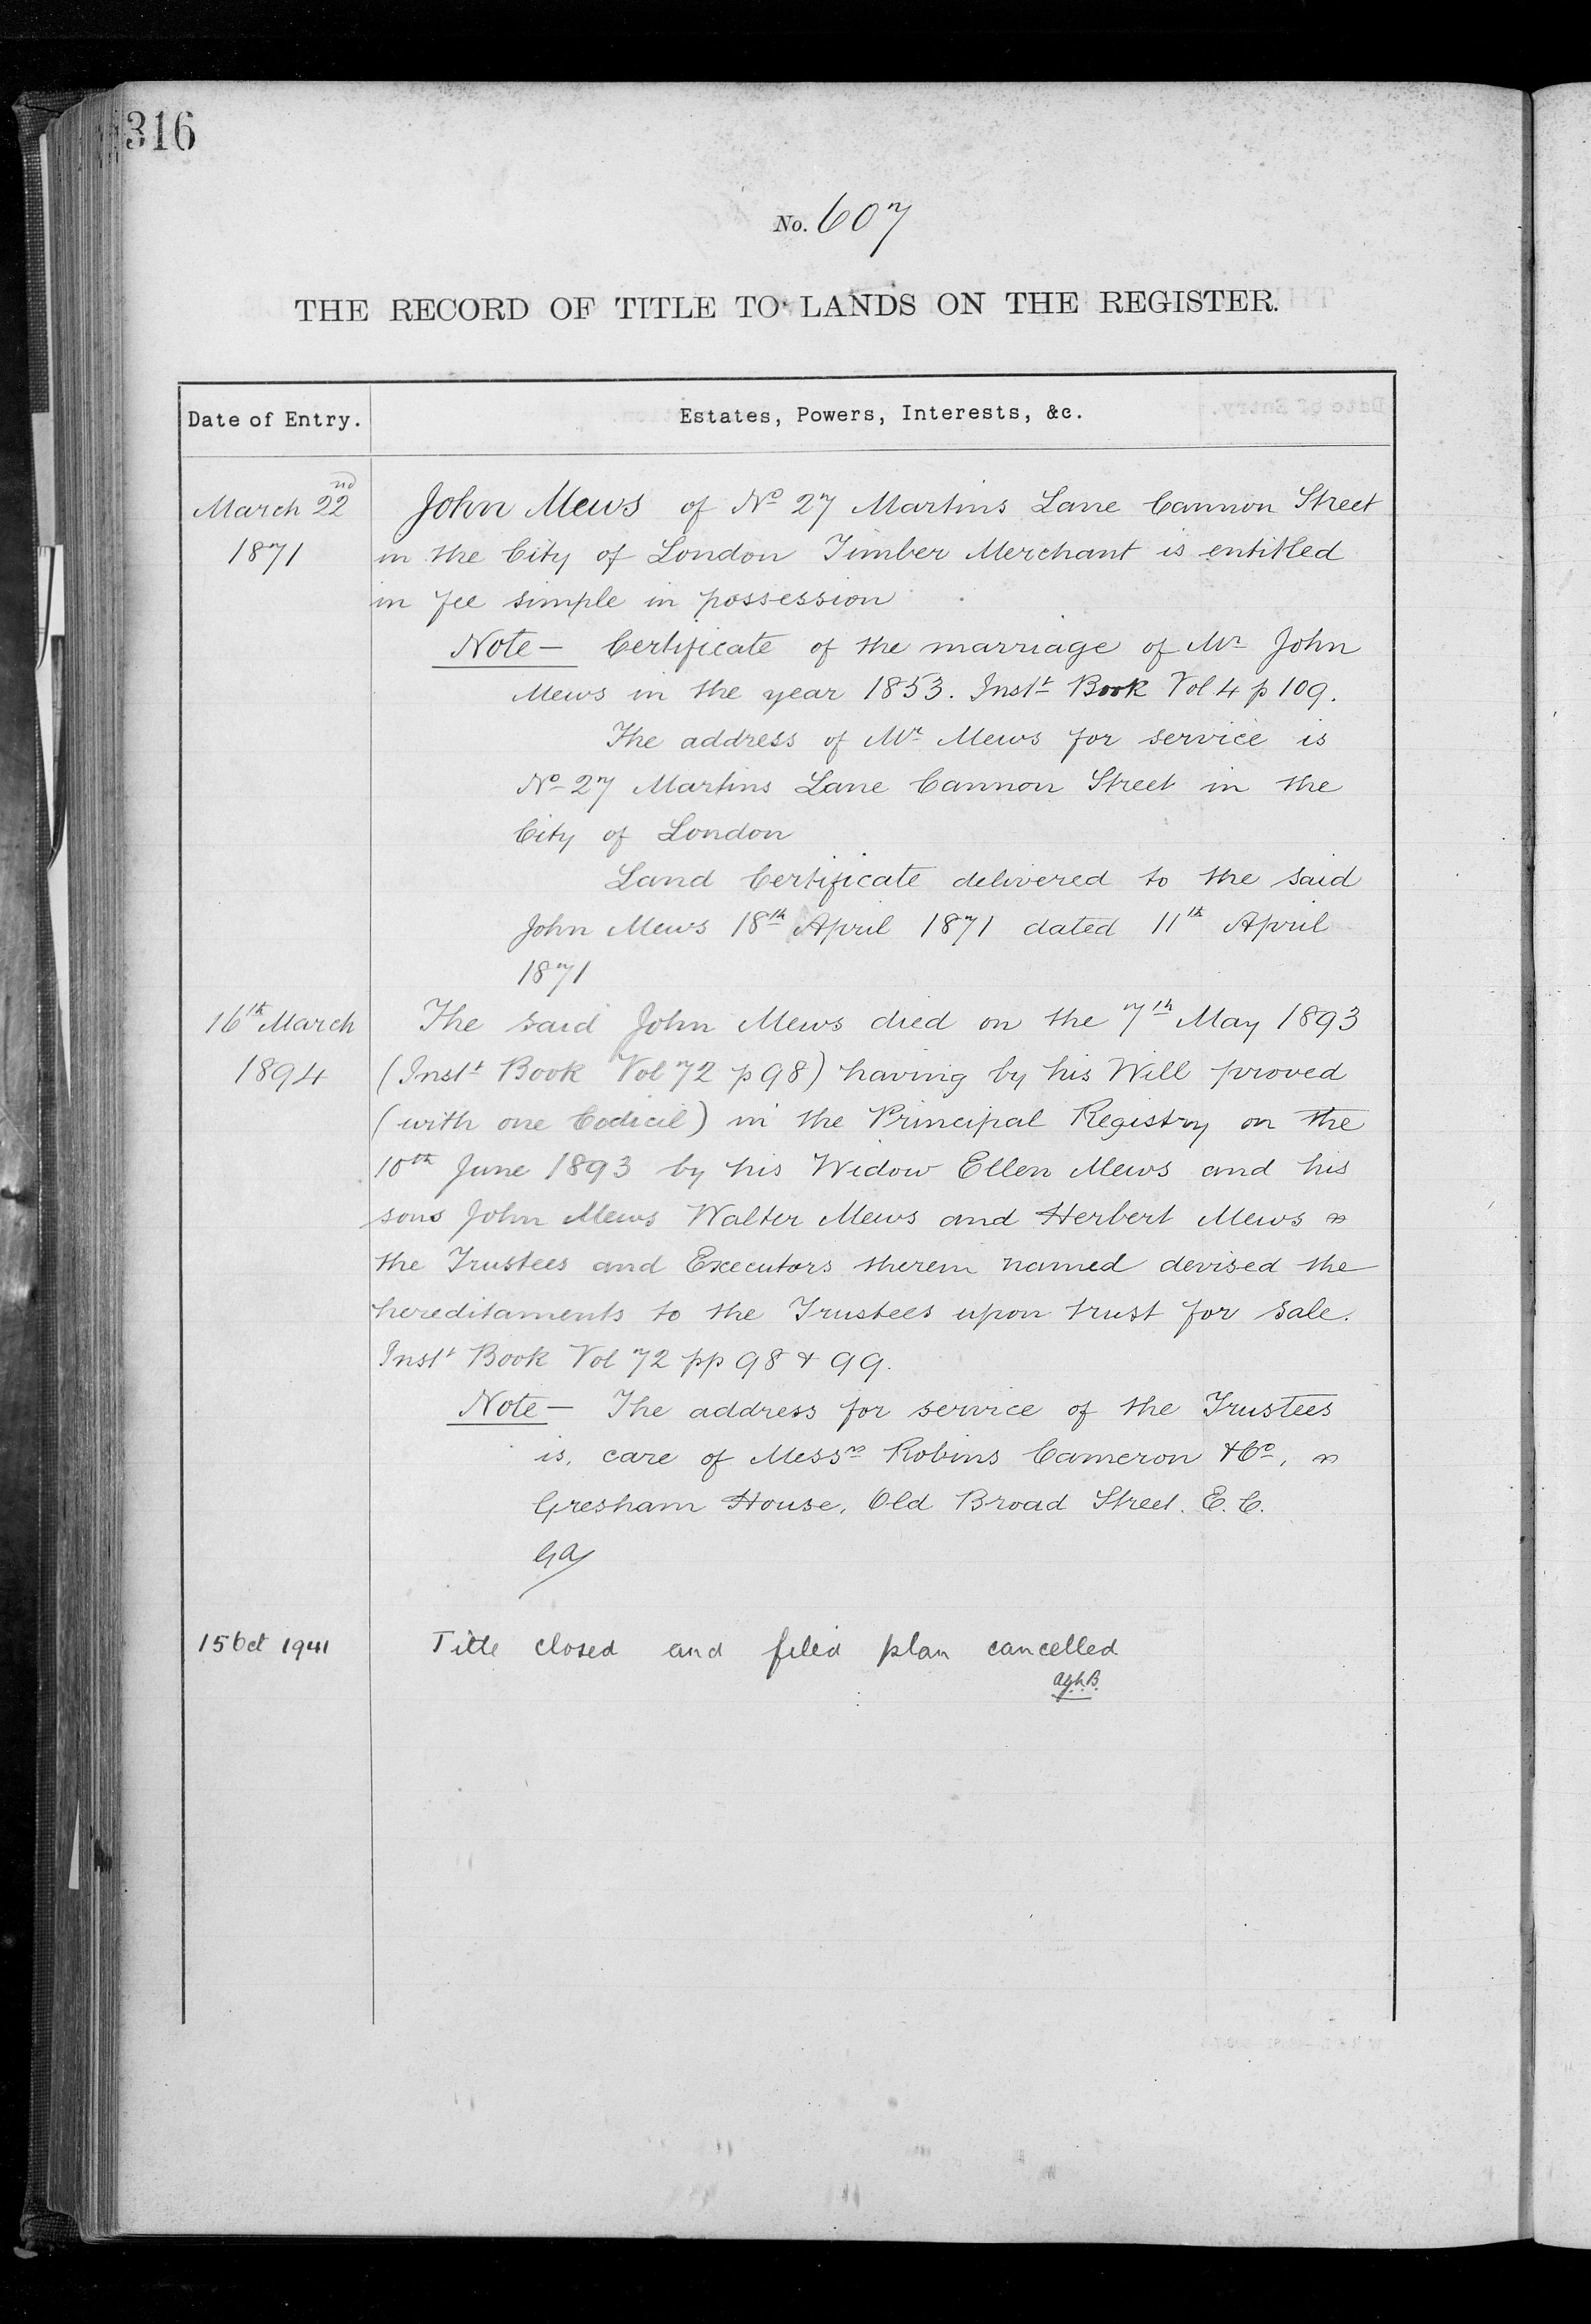 316
No. 607
THE RECORD OF TITLE TO LANDS ON THE REGISTER.
Date of Entry.
Estates, Powers, Interests, &c.
March 22nd
1871
John Mews of No 27 Martins Lane Cannon Street
in the City of London Timber Merchant is entitled
in fee simple in possession
Note – Certificate of the marriage of Mr John
Mews in the year 1853. Instt Book Vol 4 p 109.
The address of Mr Mews for service is
No 27 Martins Lane Cannon Street in the
City of London
Land Certificate delivered to the said
John Mews 18th April 1871 dated 11th April
1871
16th March
1894
The said John Mews died on the 7th May 1893
(Instt Book Vol 72 p 98) having by his Will proved
(with one Codicil) in the Principal Registry on the
10th June 1893 by his Widow Ellen Mews and his
sons John Mews Walter Mews and Herbert Mews
the Trustees and Executors therein named devised the
hereditaments to the Trustees upon trust for sale.
Instt Book Vol 72 pp 98 & 99.
Note – The address for service of the Trustees
is, care of Messrs Robins Cameron & Co,
Gresham House, Old Broad Street. E. C.
15 Oct 1941
Title closed and filed plan cancelled